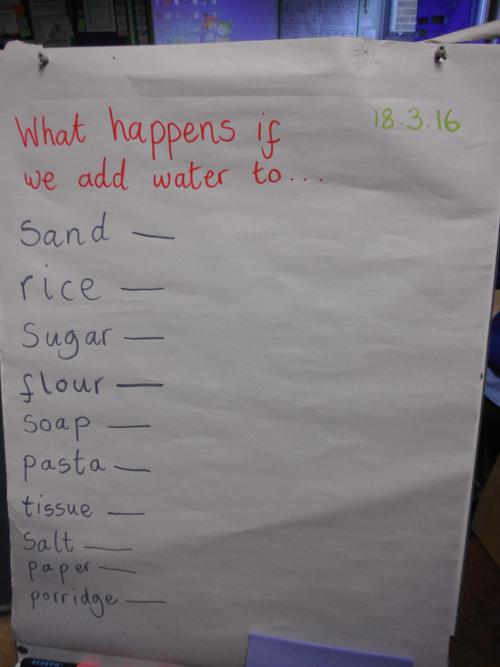 What happens if 18.3.16
we add water to...
Sand —
rice —
Sugar —
flour —
Soap —
pasta —
tissue —
Salt —
paper —
porridge —